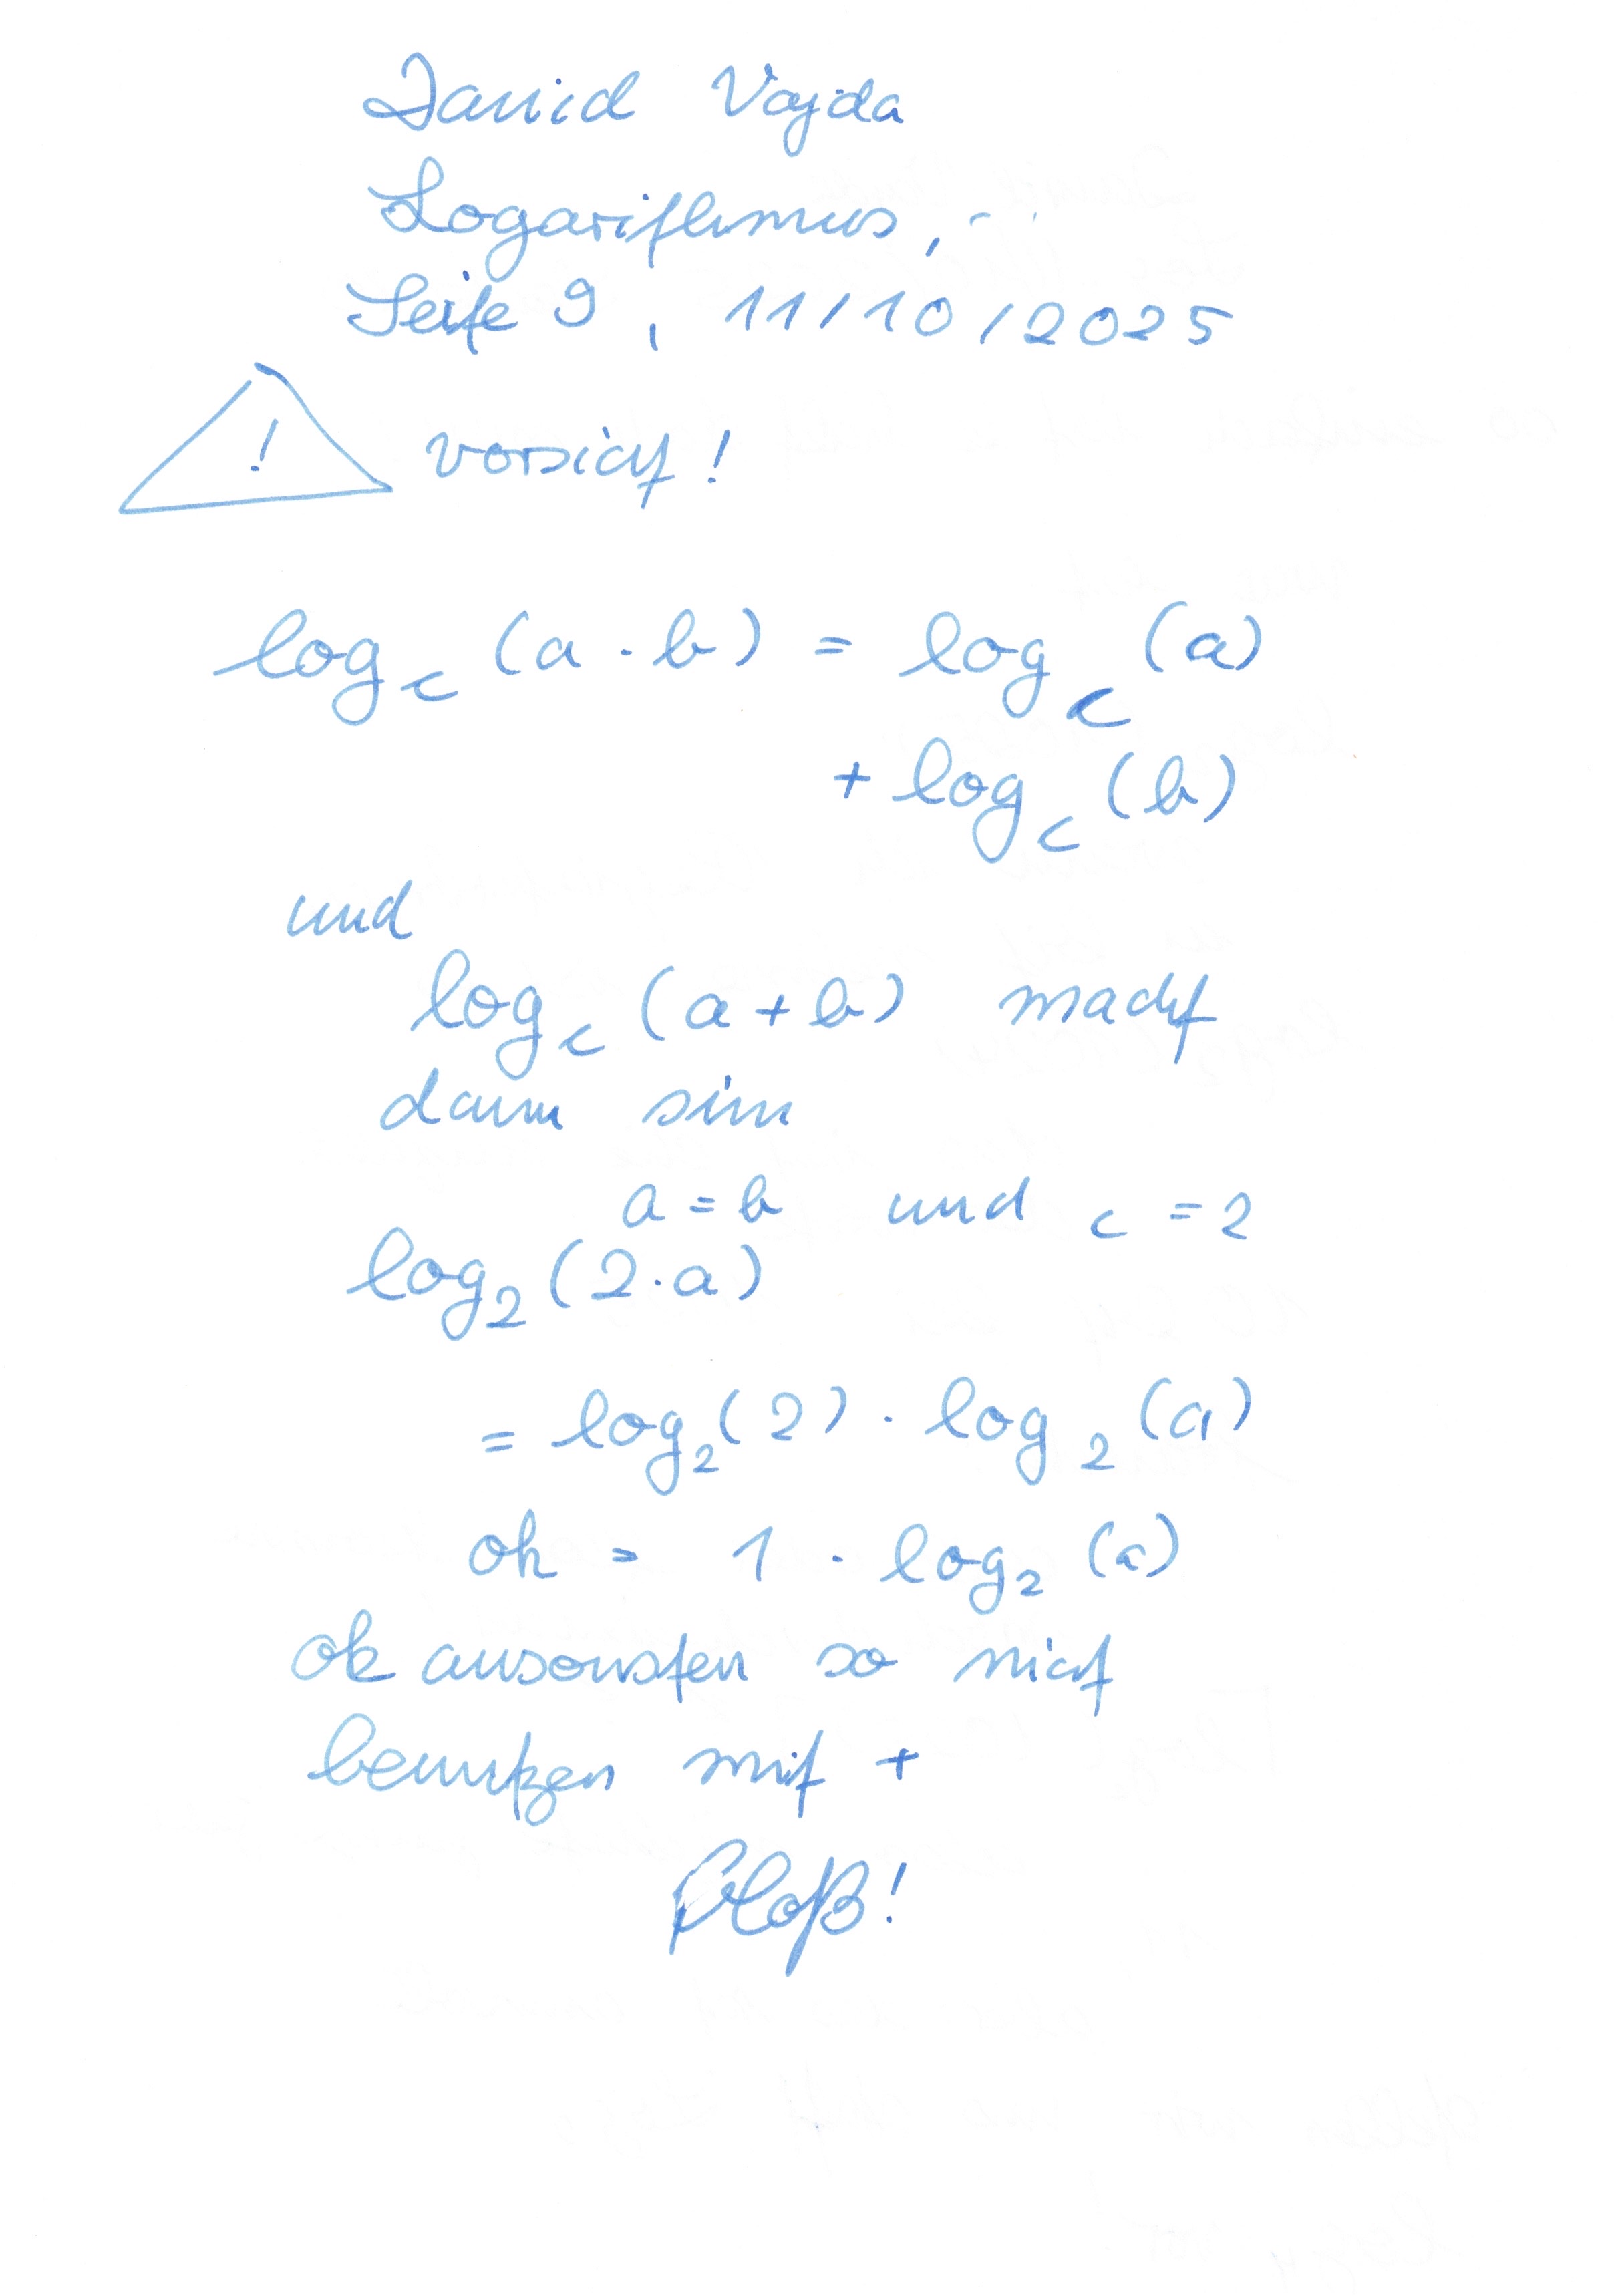 David Vajda
Logarithmus, -
Seite 9, 11/10/2025
! vorsicht!
log_c (a · b) = log_c (a)
+ log_c (b)
und
log_c (a + b) macht
dann sinn
a = b und c = 2
log_2 (2 · a)
= log_2 (2) · log_2 (a)
oh = 1 · log_2 (a)
ok ansonsten so nicht
benutzen mit +
Bloß!